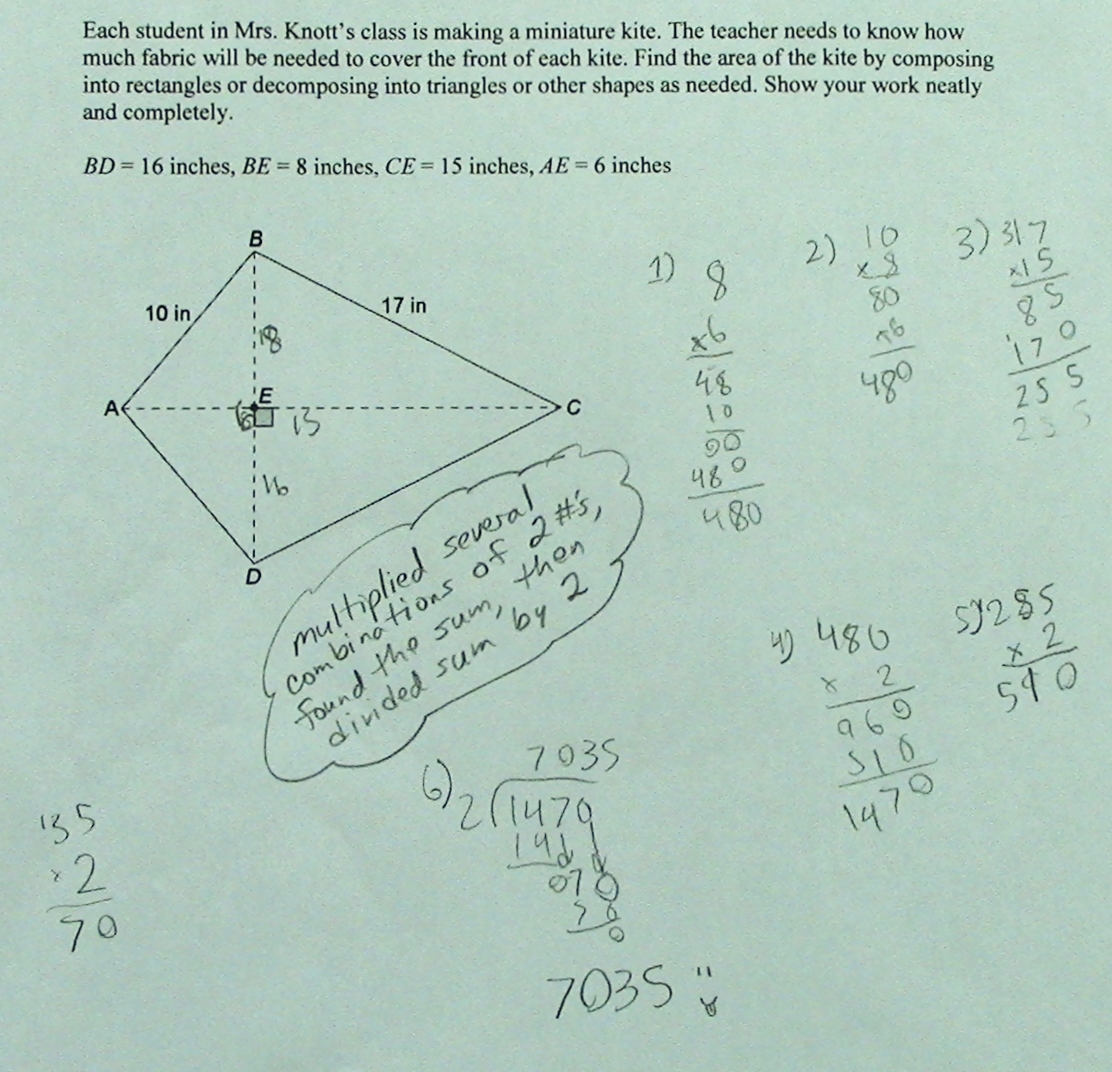 Each student in Mrs. Knott's class is making a miniature kite. The teacher needs to know how
much fabric will be needed to cover the front of each kite. Find the area of the kite by composing
into rectangles or decomposing into triangles or other shapes as needed. Show your work neatly
and completely.
BD = 16 inches, BE = 8 inches, CE = 15 inches, AE = 6 inches
B
10 in
17 in
18
A
E
C
6
15
16
D
1) 8
x6
48
10
00
480
480
2) 10
x 8
80
x6
480
3) 317
x15
85
170
255
255
multiplied several
combinations of 2 #'s,
found the sum, then
divided sum by 2
4) 480
x 2
960
510
1470
5) 285
x 2
510
6) 7035
2 1470
14
070
0
7035
135
x 2
70